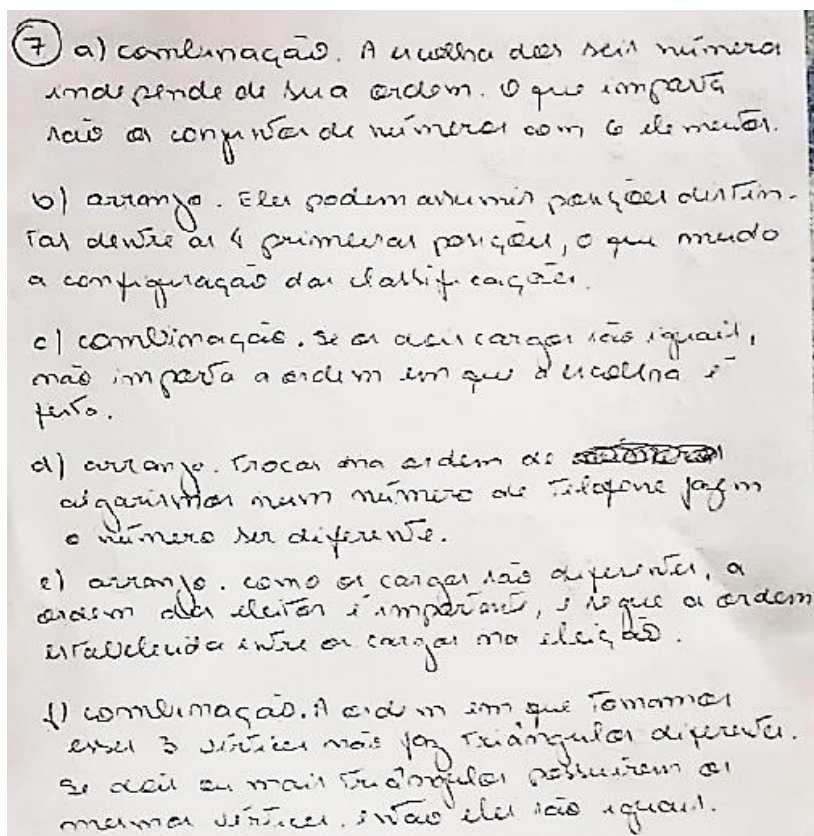 7 a) combinação. A escolha dos seis números
independe de sua ordem. O que importa
são os conjuntos de números com 6 elementos.
b) arranjo. Eles podem assumir posições distin-
tas dentre as 4 primeiras posições, o que muda
a configuração das classificações.
c) combinação. Se os dois cargos são iguais,
não importa a ordem em que a escolha é
feita.
d) arranjo. Trocas na ordem de
algarismos num número de telefone fazem
o número ser diferente.
e) arranjo. como os cargos são diferentes, a
ordem dos eleitos é importante, e segue a ordem
estabelecida entre os cargos na eleição.
f) combinação. A ordem em que tomamos
esses 3 vértices não faz triângulos diferentes.
Se dois ou mais triângulos possuírem os
mesmos vértices, então eles são iguais.